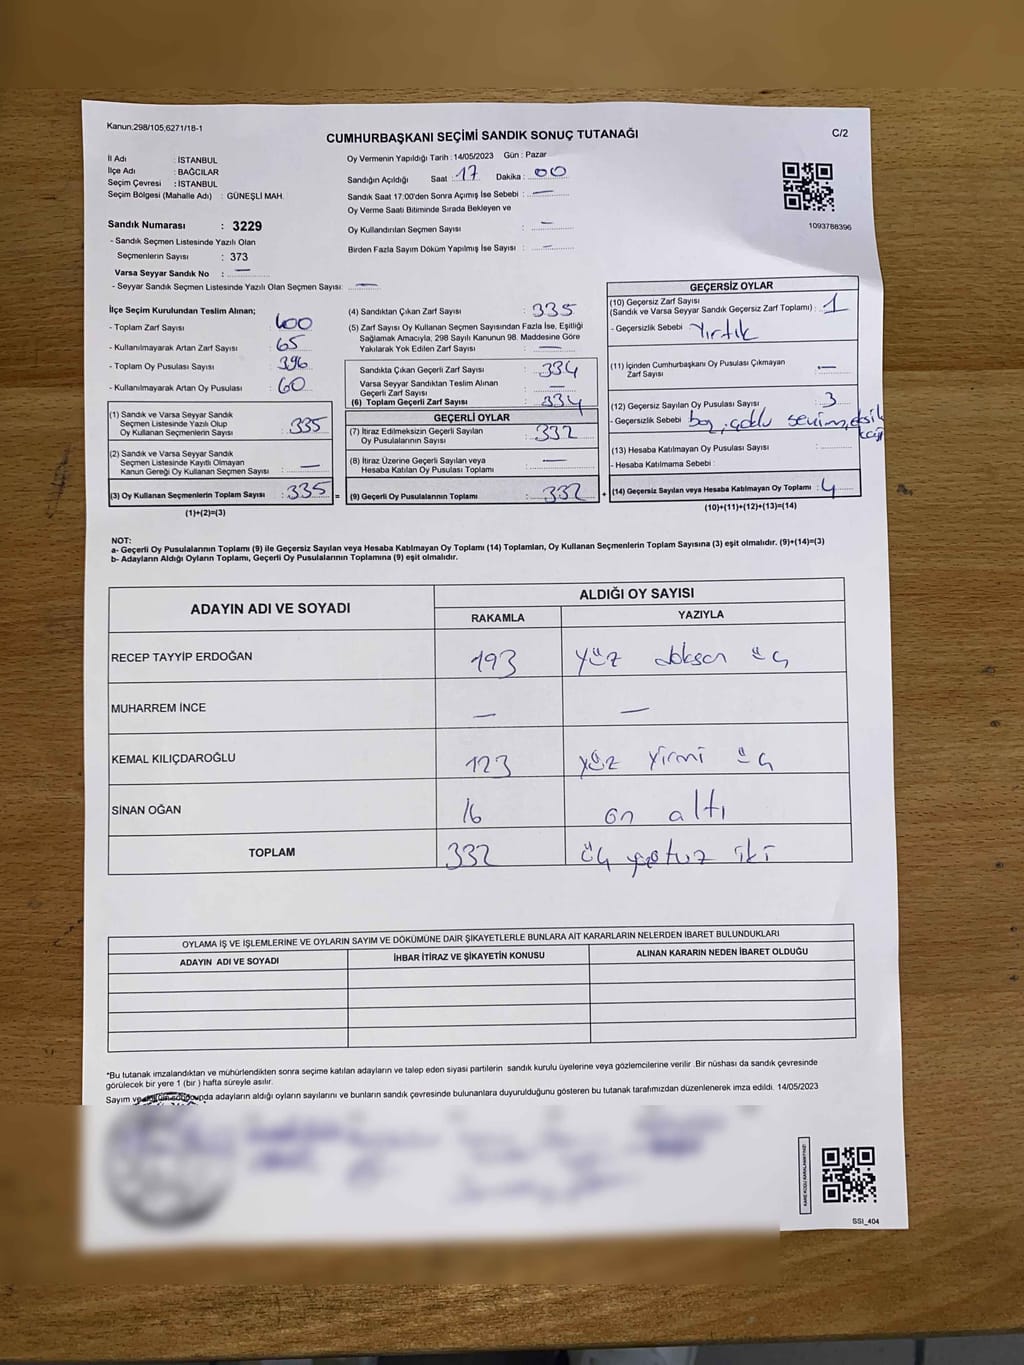 Kanun;298/105;6271/18-1
CUMHURBAŞKANI SEÇİMİ SANDIK SONUÇ TUTANAĞI
C/2
İl Adı : İSTANBUL
İlçe Adı : BAĞCILAR
Seçim Çevresi : İSTANBUL
Seçim Bölgesi (Mahalle Adı) : GÜNEŞLİ MAH.
Oy Vermenin Yapıldığı Tarih : 14/05/2023 Gün : Pazar
Sandığın Açıldığı Saat : 17 Dakika : 00
Sandık Saat 17:00'den Sonra Açımış İse Sebebi : —
Oy Verme Saati Bitiminde Sırada Bekleyen ve
Oy Kullandırılan Seçmen Sayısı : —
Birden Fazla Sayım Döküm Yapılmış İse Sayısı : —
1093788396
Sandık Numarası : 3229
- Sandık Seçmen Listesinde Yazılı Olan
Seçmenlerin Sayısı : 373
Varsa Seyyar Sandık No : —
- Seyyar Sandık Seçmen Listesinde Yazılı Olan Seçmen Sayısı: —
İlçe Seçim Kurulundan Teslim Alınan;
- Toplam Zarf Sayısı : 400
- Kullanılmayarak Artan Zarf Sayısı : 65
- Toplam Oy Pusulası Sayısı : 396
- Kullanılmayarak Artan Oy Pusulası : 60
(1) Sandık ve Varsa Seyyar Sandık
Seçmen Listesinde Yazılı Olup
Oy Kullanan Seçmenlerin Sayısı : 335
(2) Sandık ve Varsa Seyyar Sandık
Seçmen Listesinde Kayıtlı Olmayan
Kanun Gereği Oy Kullanan Seçmen Sayısı : —
(3) Oy Kullanan Seçmenlerin Toplam Sayısı : 335 =
(1)+(2)=(3)
(4) Sandıktan Çıkan Zarf Sayısı : 335
(5) Zarf Sayısı Oy Kullanan Seçmen Sayısından Fazla İse, Eşitliği
Sağlamak Amacıyla, 298 Sayılı Kanunun 98. Maddesine Göre
Yakılarak Yok Edilen Zarf Sayısı : —
Sandıkta Çıkan Geçerli Zarf Sayısı : 334
Varsa Seyyar Sandıktan Teslim Alınan
Geçerli Zarf Sayısı : —
(6) Toplam Geçerli Zarf Sayısı : 334
GEÇERLİ OYLAR
(7) İtiraz Edilmeksizin Geçerli Sayılan
Oy Pusulalarının Sayısı : 332
(8) İtiraz Üzerine Geçerli Sayılan veya
Hesaba Katılan Oy Pusulası Toplamı : —
(9) Geçerli Oy Pusulalarının Toplamı : 332 +
GEÇERSİZ OYLAR
(10) Geçersiz Zarf Sayısı
(Sandık ve Varsa Seyyar Sandık Geçersiz Zarf Toplamı) : 1
- Geçersizlik Sebebi : Yırtık
(11) İçinden Cumhurbaşkanı Oy Pusulası Çıkmayan
Zarf Sayısı : —
(12) Geçersiz Sayılan Oy Pusulası Sayısı : 3
- Geçersizlik Sebebi :
(13) Hesaba Katılmayan Oy Pusulası Sayısı :
- Hesaba Katılmama Sebebi :
(14) Geçersiz Sayılan veya Hesaba Katılmayan Oy Toplamı : 4
(10)+(11)+(12)+(13)=(14)
NOT:
a- Geçerli Oy Pusulalarının Toplamı (9) ile Geçersiz Sayılan veya Hesaba Katılmayan Oy Toplamı (14) Toplamları, Oy Kullanan Seçmenlerin Toplam Sayısına (3) eşit olmalıdır. (9)+(14)=(3)
b- Adayların Aldığı Oyların Toplamı, Geçerli Oy Pusulalarının Toplamına (9) eşit olmalıdır.
ADAYIN ADI VE SOYADI
ALDIĞI OY SAYISI
RAKAMLA YAZIYLA
RECEP TAYYİP ERDOĞAN 193 yüz doksan üç
MUHARREM İNCE — —
KEMAL KILIÇDAROĞLU 123 yüz yirmi üç
SİNAN OĞAN 16 on altı
TOPLAM 332 üç yüz otuz iki
OYLAMA İŞ VE İŞLEMLERİNE VE OYLARIN SAYIM VE DÖKÜMÜNE DAİR ŞİKAYETLERLE BUNLARA AİT KARARLARIN NELERDEN İBARET BULUNDUKLARI
ADAYIN ADI VE SOYADI İHBAR İTİRAZ VE ŞİKAYETİN KONUSU ALINAN KARARIN NEDEN İBARET OLDUĞU
*Bu tutanak imzalandıktan ve mühürlendikten sonra seçime katılan adayların ve talep eden siyasi partilerin sandık kurulu üyelerine veya gözlemcilerine verilir .Bir nüshası da sandık çevresinde
görülecek bir yere 1 (bir ) hafta süreyle asılır.
Sayım ve adayların aldığı oyların sayılarını ve bunların sandık çevresinde bulunanlara duyurulduğunu gösteren bu tutanak tarafımızdan düzenlenerek imza edildi. 14/05/2023
SSI_404